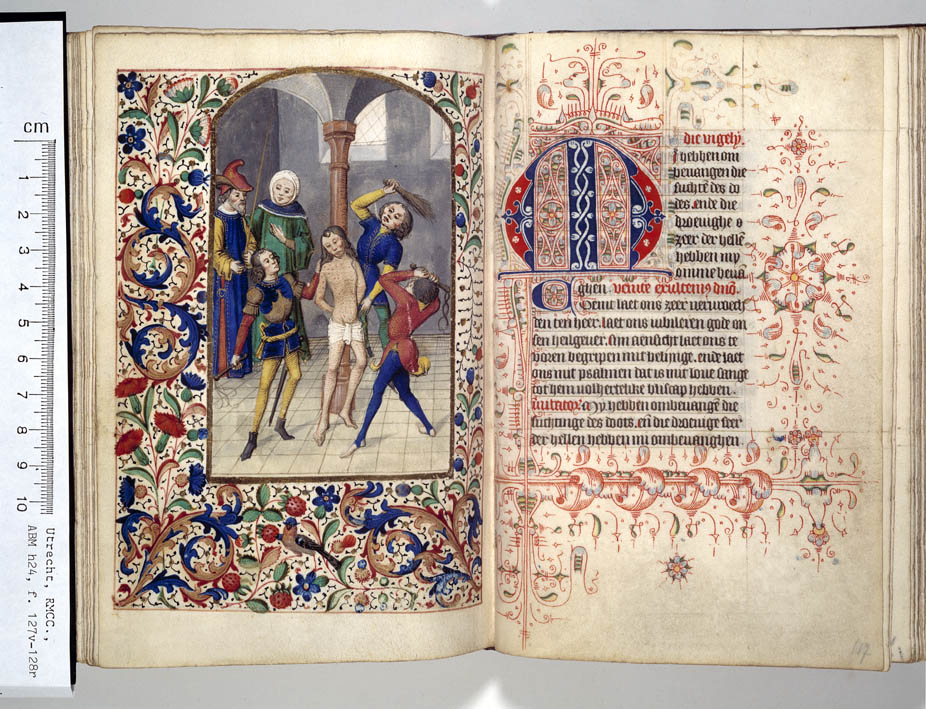 cm
1
2
3
4
5
6
7
8
9
10
Utrecht, RMCC.,
ABM h24, f. 127v-128r
die vigely
M hebben om
beuangen die
suchtē des do
des. ende die
droeuighe
zeer der helle
hebben my
omme beuā
ghen. venite exultemꝰ dno
Coemt laet ons zeer verwoech
den ten heer. laet ons iubileren gode on
sen heilgeuer. sijn aensicht laet ons te
voren begrepen mit belyinge. ende laet
ons mit psalmen dat is mit loue sange
tot dem volhertelike bliscap hebben
hebben ombeuangē die
suchtinge des doots. eñ die droeuige seer
der hellen hebben mi ombeuanghen